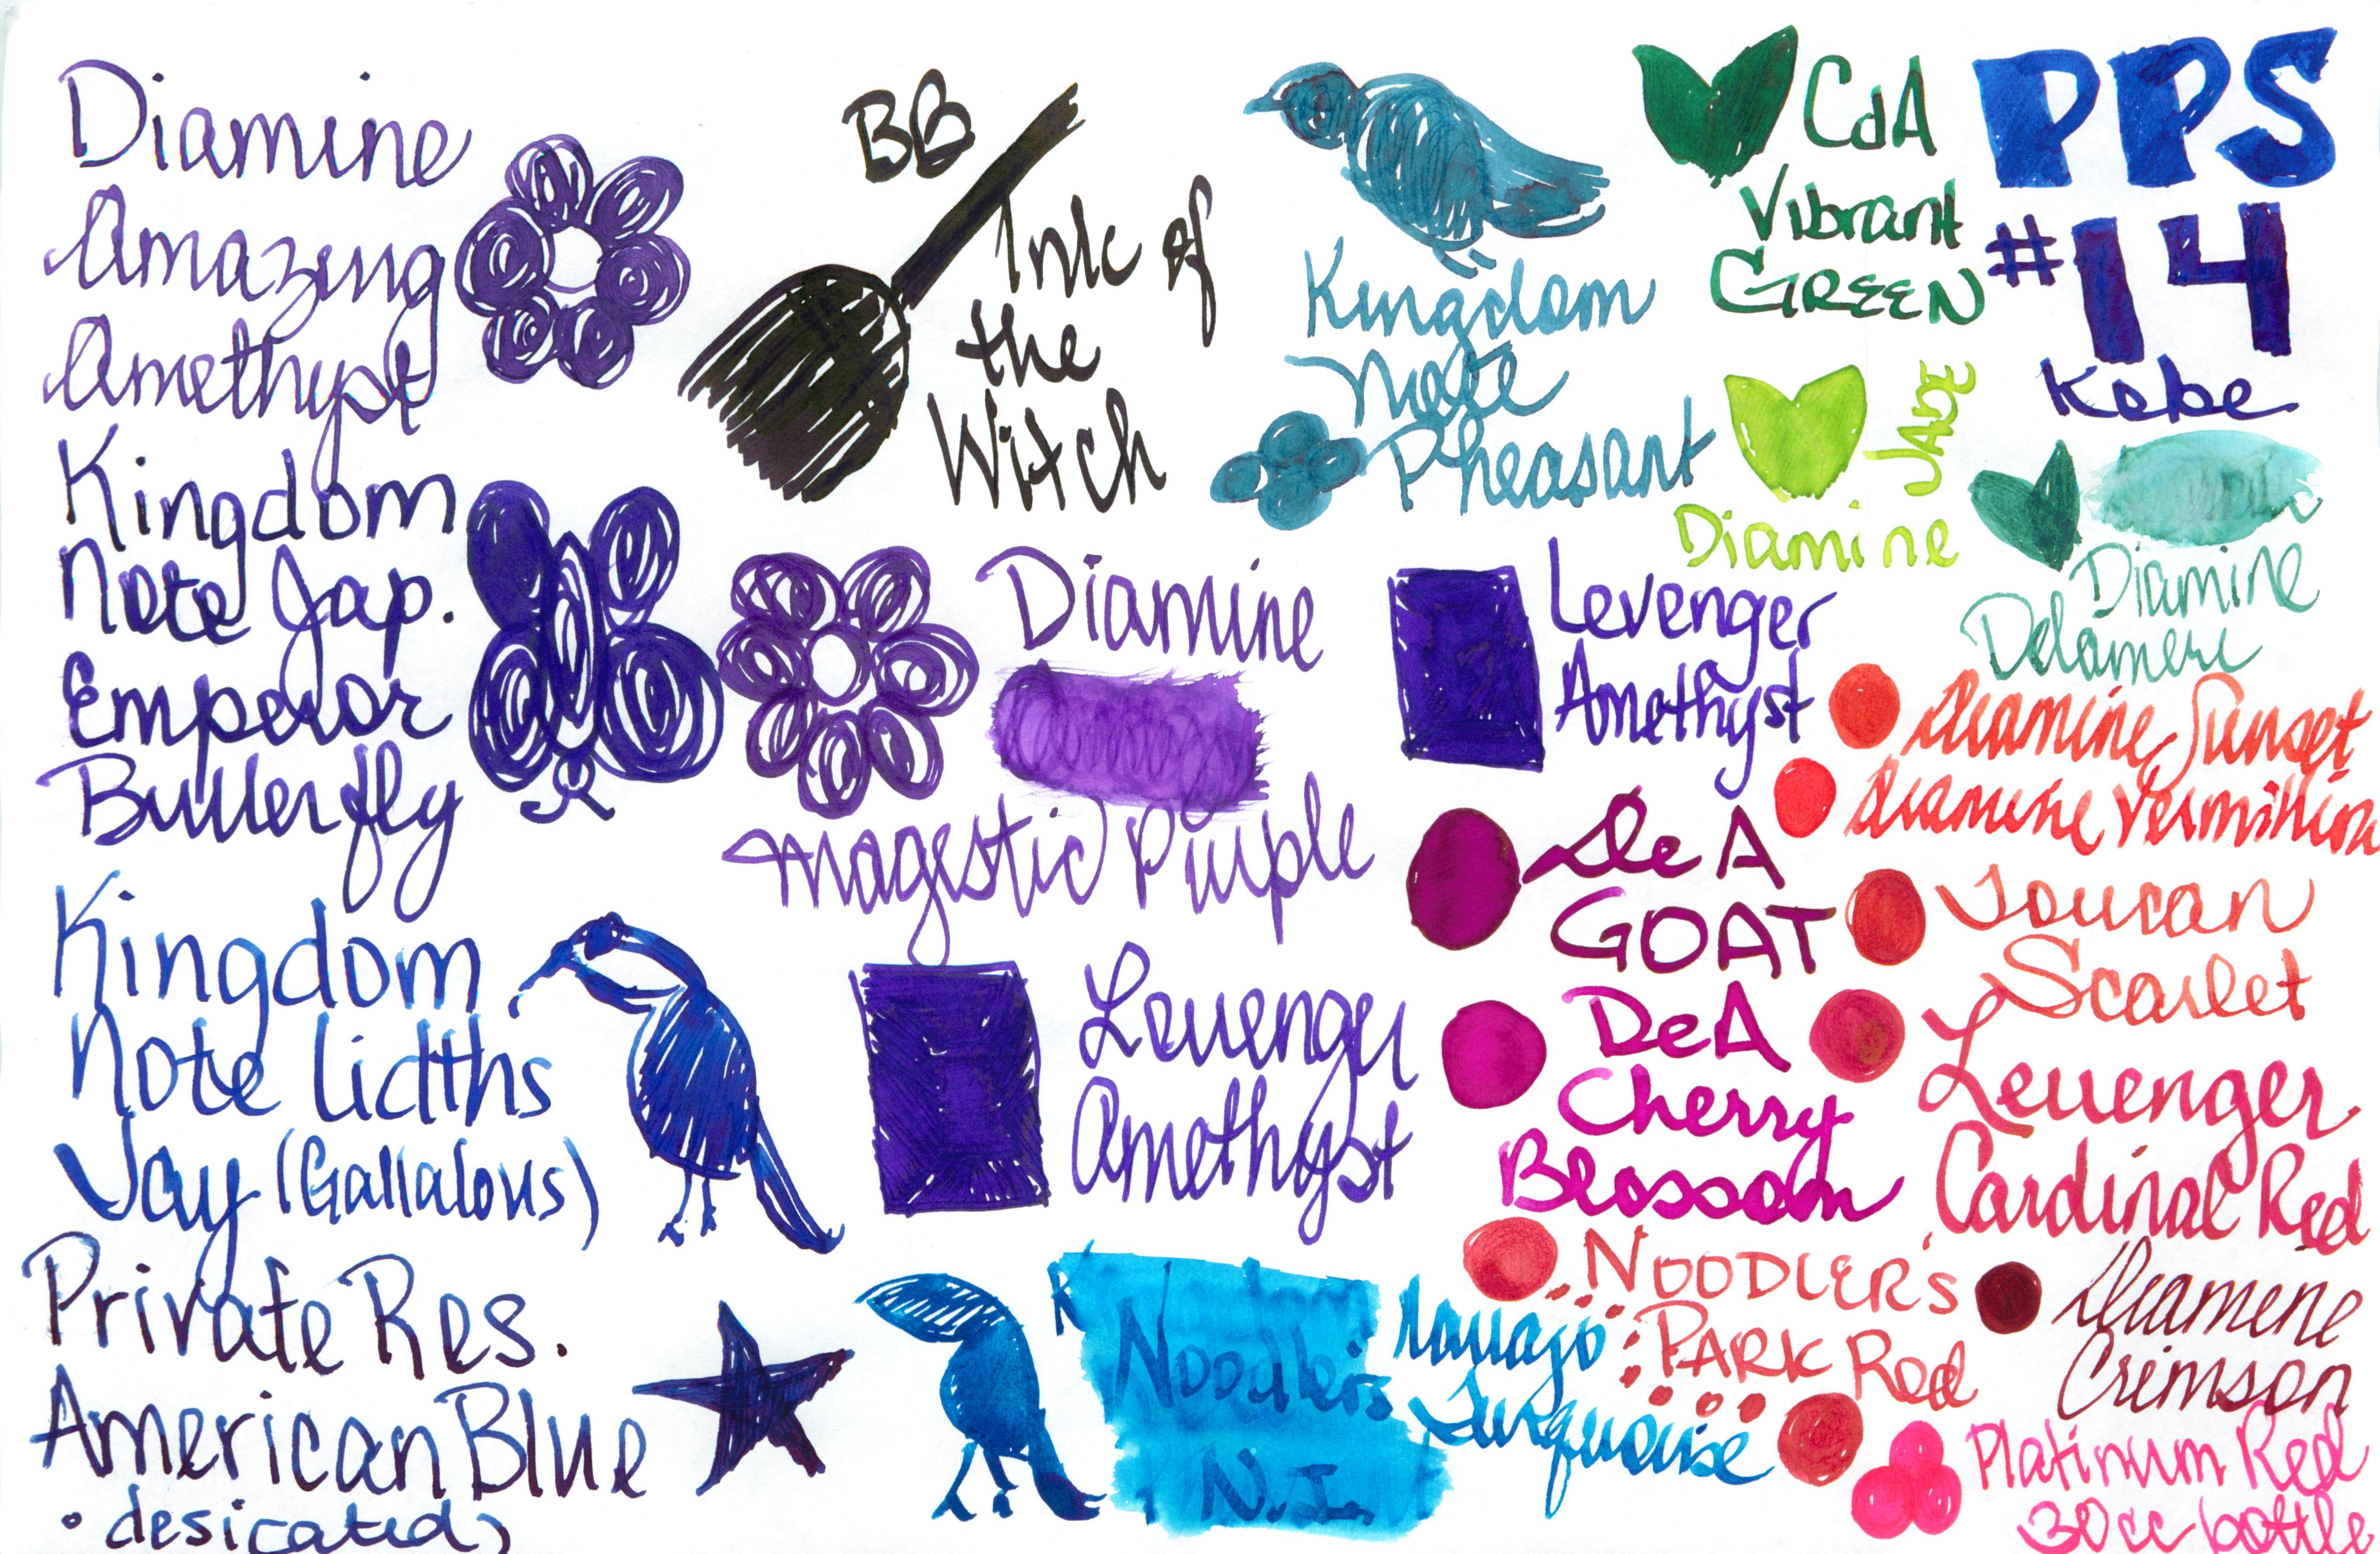 Diamine
Amazing
Amethyst
Kingdom
Note Jap.
Emperor
Butterfly
Kingdom
Note Lidths
Jay (Gallalous)
Private Res.
American Blue
• desicated
BB
Ink of
the
Witch
Diamine
Magestic Purple
Levenger
Amethyst
Noodler's
N.T.
Navajo
Turquoise
Kingdom
Note
Pheasant
CdA
Vibrant
GREEN
PPS
#14
Kobe
Diamine
JADE
Diamine
Delamere
Levenger
Amethyst
Diamine Sunset
Diamine Vermillion
De A
GOAT
Toucan
Scarlet
DeA
Cherry
Blossom
Levenger
Cardinal Red
NOODLER'S
PARK Red
Diamine
Crimson
Platinum Red
30cc bottle